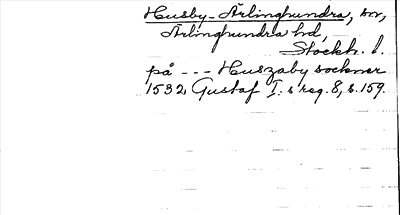 Husby-Ärlinghundra, sn,
Ärlinghundra hd,
Stockh. l.
på --- Huszaby sockner
1532, Gustaf I:s reg. 8, s. 159.